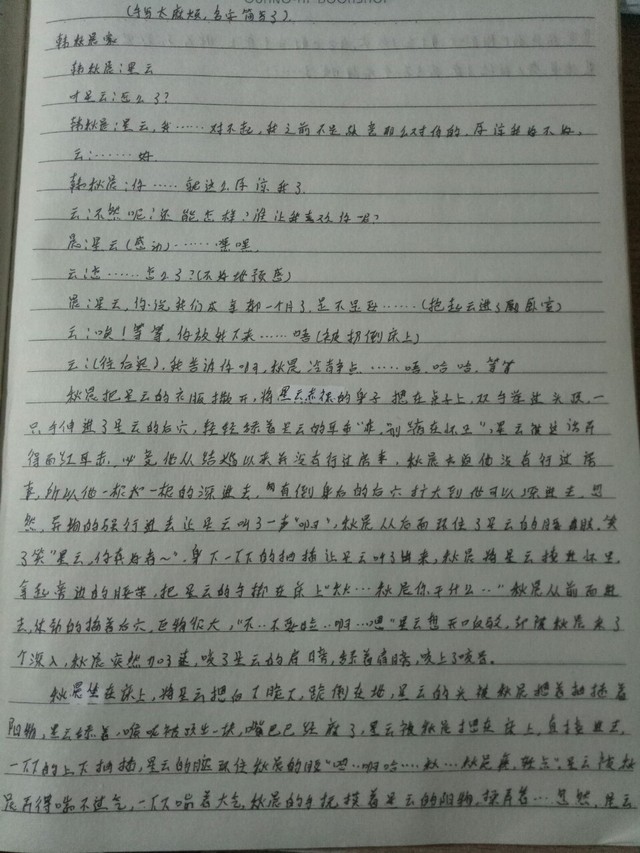 (写太麻烦,名字简写了)
韩秋晨家
韩秋晨:星云
叶星云:怎么了?
韩秋晨:星云,我……对不起,我之前不是故意那么对你的,原谅我好不好。
云:……好
韩秋晨:你……就这么原谅我了
云:不然呢?还能怎样?谁让我喜欢你呢?
晨:星云(感动)……嘿嘿
云:怎……怎么了?(不好地预感)
晨:星云,你说我们成亲都一个月了,是不是要……(抱起云进了卧室)
云:唉!等等,你放我下来……唔(被扔倒床上)
云:(往后退),我告诉你啊,秋晨冷静点……唔,哈哈,等等
秋晨把星云的衣服撕开,将星云赤裸的身子把在桌子上,双手 过头顶,一
只手伸进了星云的后穴,轻轻揉着星云的 "乖,别 ",星云被这话弄
得面红耳赤,必竟他从结婚以来并没有行过房事,秋晨知道他没有行过房
事,所以他一根一根的深进去, 的后穴扩大到他可以深进去,忽
然,异物的 进去让星云叫了一声"啊",秋晨从后面环住了星云的腰 ,笑
了笑"星云,你真好看~",身下一下下的抽插让星云叫了出来,秋晨将星云搂进怀里,
拿起旁边的腰带,把星云的手绑在床上"秋…秋晨你干什么…"秋晨从前面进
去,体动的插着后穴,巨物很大,"不…不要 …啊…嗯"星云想开口 ,却被秋晨来了
个深入,秋晨突然加了速,咬了星云的肩膀, 着肩膀,咬上了
秋晨坐在床上,将星云 ,跪倒在地,星云的头被秋晨把着抽插着
阳物,星云 着,喉咙 一块,嘴巴已经 了,星云被秋晨把在床上,直接进去,
一下下的上下抽插,星云的腿环住秋晨的腰"嗯…啊哈……秋…秋晨 点",星云被秋
晨弄得喘不过气,一下下喘着大气,秋晨的手抚摸着星云的阳物,揉弄着…忽然,星云